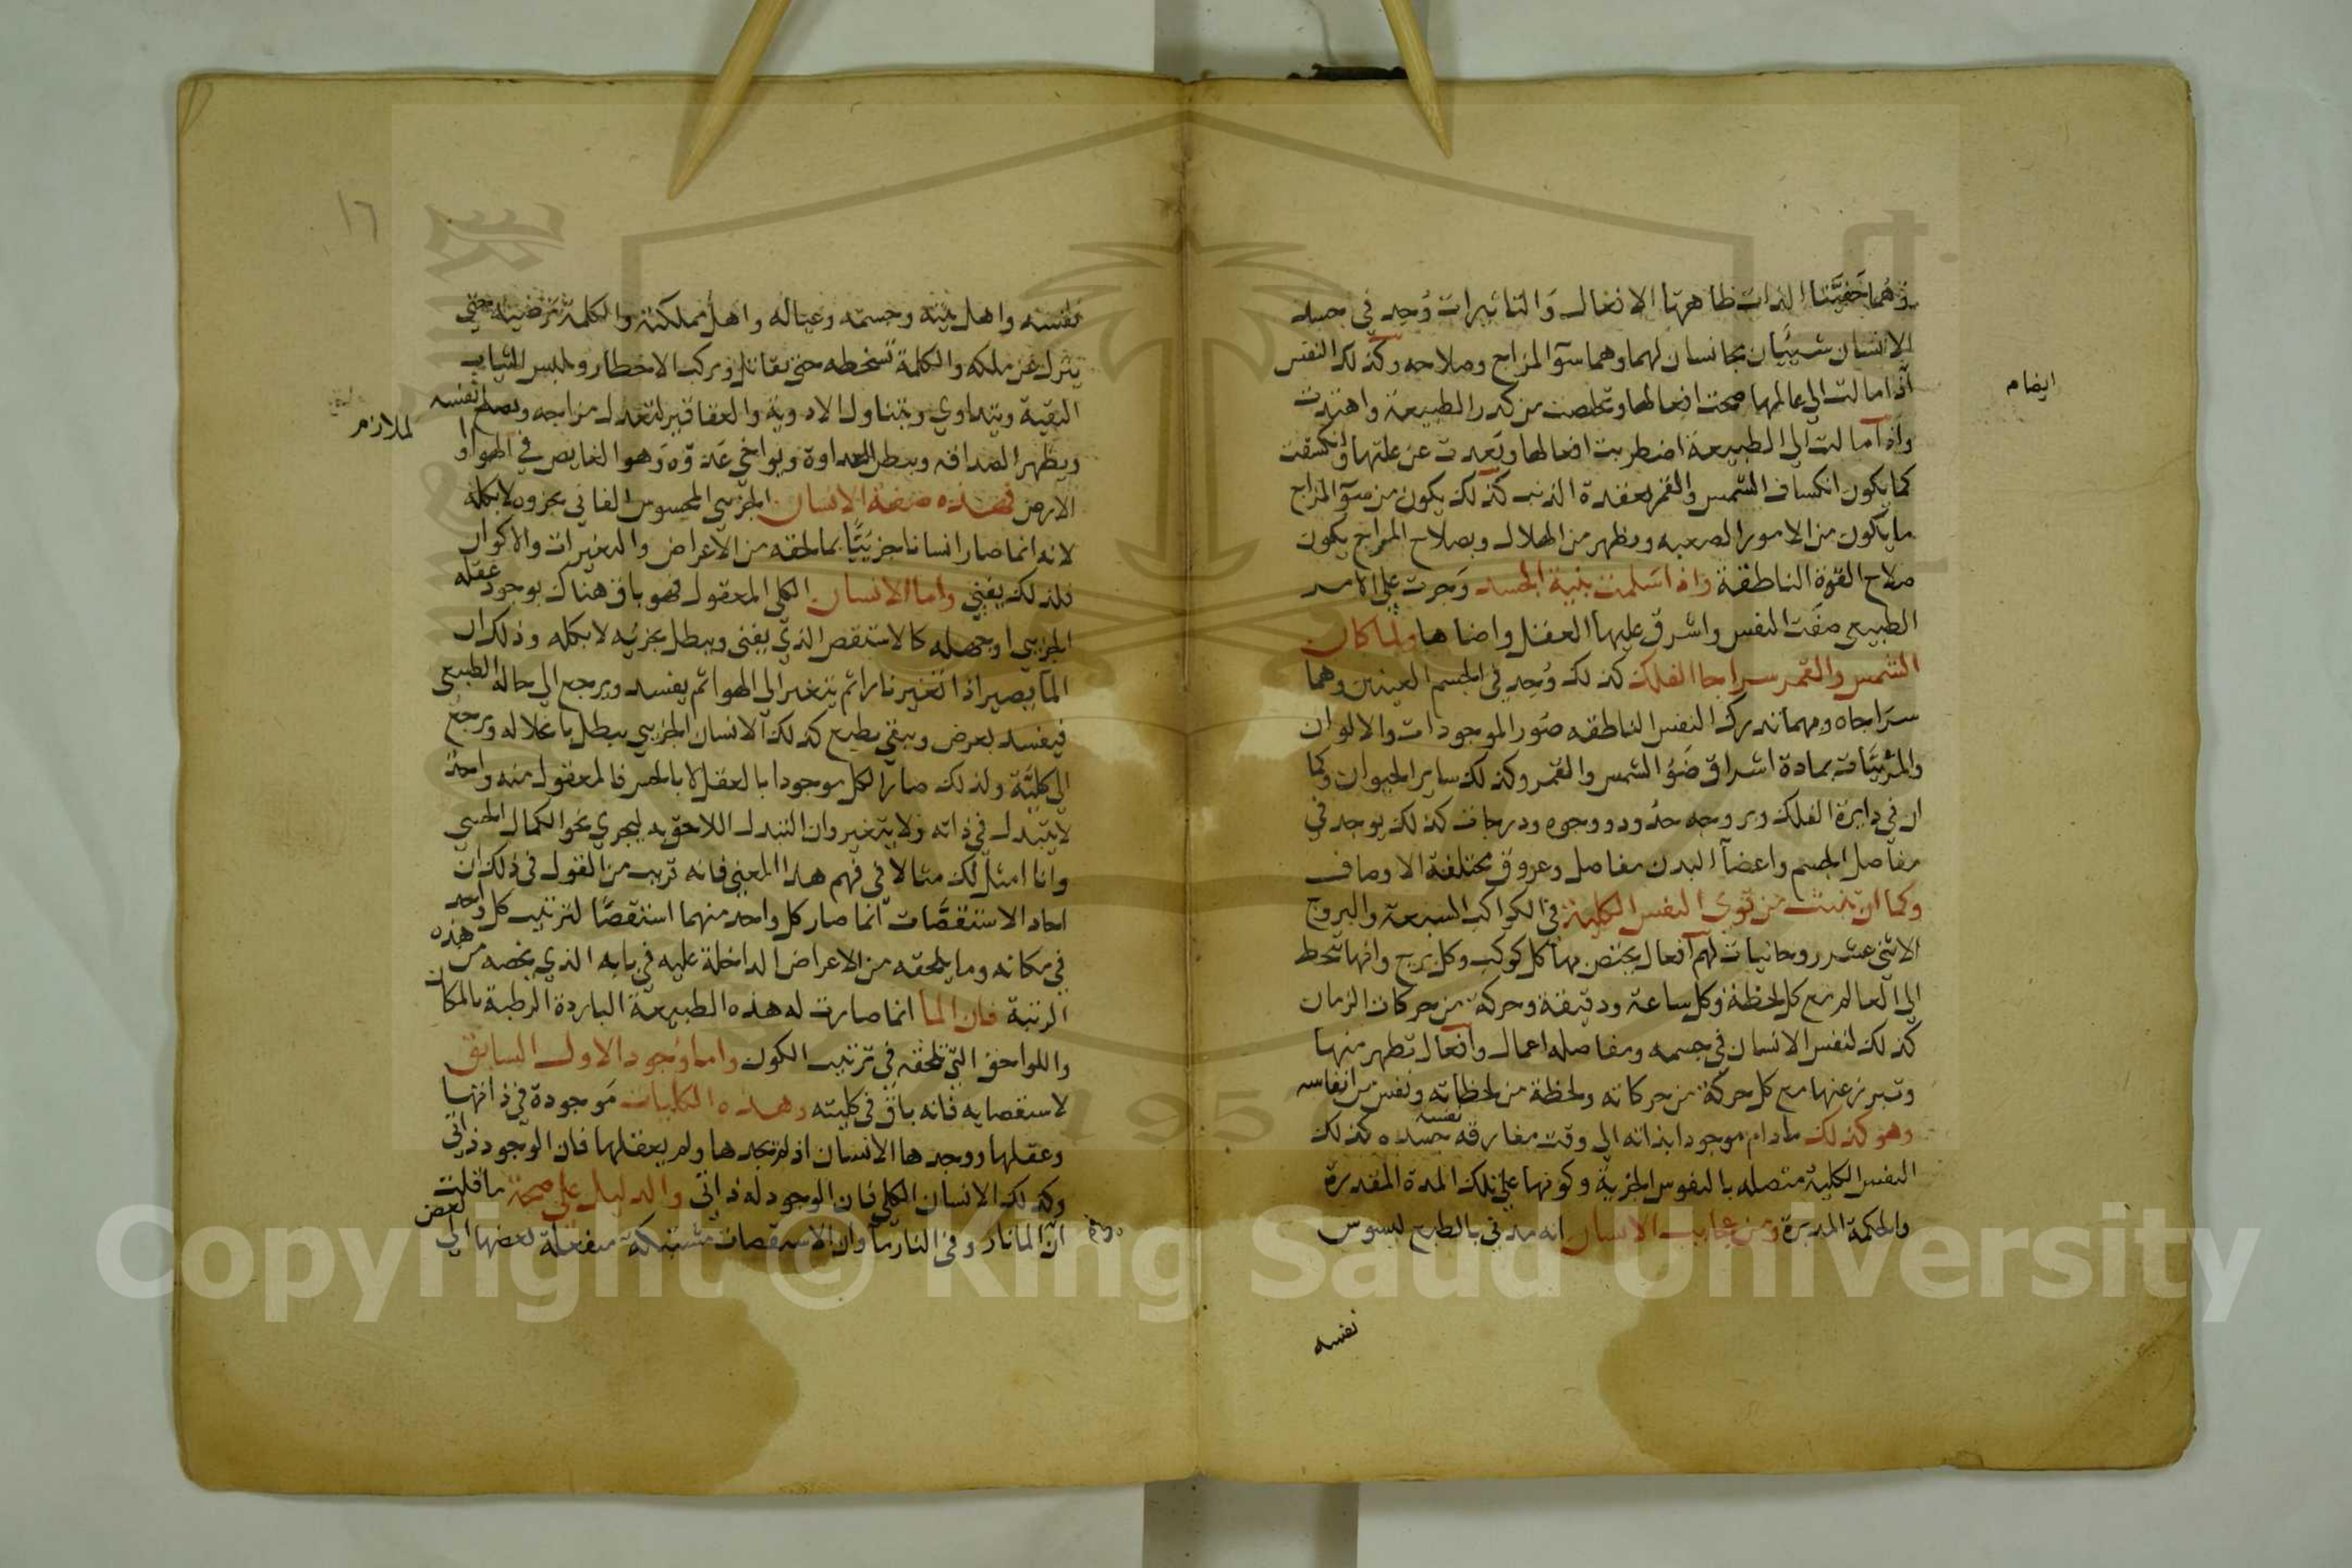 وهما خفيتا الذات ظاهرتا الافعال والتاثيرات وُجد في جسد
الانسان شيئان يجانسان لهما وهما سوء المزاج وصلاحه وكذلك النفس
اذا مالت الي عالمها صحت افعالها وتخلصت من كدر الطبيعة واهتدت
ايضا م
واذا مالت الي الطبيعة اضطربت افعالها وبَعدت عن علتها وانكسفت
كما يكون انكساف الشمس والقمر بعقدة الذنب كذلك يكون من سوء المزاج
ما يكون من الامور الصعبه ويظهر من الهلال وبصلاح المزاج يكون
صلاح القوة الناطقة واذا سَلمت بنية الجسد وَجرت علي الامر
الطبيعي صفَت النفس واشرق عليها العقل واضاها ولما كان
الشمس والقمر سراجا الفلك كذلك وُجد في الجسم العينين وهما
سرَاجاه وبهما تدرك النفس الناطقه صُور الموجودات والالوان
والمرئيَّات بمادة اشراق ضَوُ الشمس والقمر وكذلك ساير الحيوان وكما
ان في دايرة الفلك وبروجه حدُود ووجوه ودرجات كذلك يوجد في
مفاصل الجسم واعضآ البدن مفاصل وعروق مختلفة الاوصاف
وكما ان تنبث من قوي النفس الكلية في الكواكب السبعة والبروج
الاثني عشر روحانيات لهم افعال يختص بها كل كوكب وكل برج وانها تنحط
الي العالم مع كل لحظة وكل ساعة ودقيقة وحركة من حركات الزمان
كذلك لنفس الانسان في جسمه ومفاصله اعمال وافعال تظهر منها
وتبرز عنها مع كل حركة من حركاته ولحظة من لحظاته ونفس من انفاسه
وهو كذلك مادام موجودا بذاته الي وقت مفارقه نفسه جسده كذلك
النفس الكلية متصله بالنفوس الجزية وكونها علي تلك المدة المقدرة
والحكمة المدبرة ومن عجايب الانسان انه مدني بالطبع ليسوس
نفسه
١٦
نفسه واهل بيته وجسمه وعياله واهل مملكته والكلمة ترضيه حتي
ينزل عن ملكه والكلمة تسخطه حتي يقاتل ويركب الاخطار ويلبس الثياب
النقية ويتداوي ويتناول الادوية والعقاقير لتعدل مزاجه ويصلح نفسه
لملازم
ويظهر الصداقه ويبطل العداوة ويواخي عَدوّه وَهو الغايص في الهوا و
الارض فهذه صفة الانسان الجزيي المحسوس الفاني بجزوه لا بكله
لانه انما صار انسانا جزييًّا بما لحقه من الاعراض والتغيرات والاكوان
فلذلك يفني واما الانسان الكلي المعقول فهو باق هناك بوجود عقله
الجزيي او جهله كالاستقص الذي يفني ويبطل بجزئه لا بكله وذلك ان
المآ يصير اذا تغير نارا ثم يتغير الي الهوا ثم يفسد ويرجع الي حاله الطبيعي
فيفسد بعرض ويبقي بطبع كذلك الانسان الجزيي يبطل بانحلاله ويرجع
الي كليَّة ولذلك صار الكل موجودا بالعقل لا بالحس فالمعقول منه واحد
لا يتبدل في ذاته ولا يتغير وان التبدل اللاحق به ليجري نحو الكمال الحسي
وانا امثل لك مثالا في فهم هذا المعني فانه قريب من القول في ذلك ان
احاد الاستقصَّات انما صار كل واحد منهما استقصًّا لترتيب كل واحد
في مكانه وما يلحقه من الاعراض الداخلة عليه في بابه الذي يخصه من هذه
الرتبة فان المآ انما صارت له هذه الطبيعة الباردة الرطبة بالمكان
واللواحق التي تلحقه في ترتيب الكون واما وُجود الاول السابق
لاستقصايه فانه باق في كليته وهذه الكليات مَوجودة في ذاتها
وعقلها ووجدها الانسان اذ لم يجدها ولم يعقلها فان الوجود ذاتي
وكذلك الانسان الكلي فان الوجود له ذاتي والدليل علي صحة ما قلت
ان المآ نار وفي النار مآ وان الاستقصات مشتبكة منفعلة بعضها الي بعض